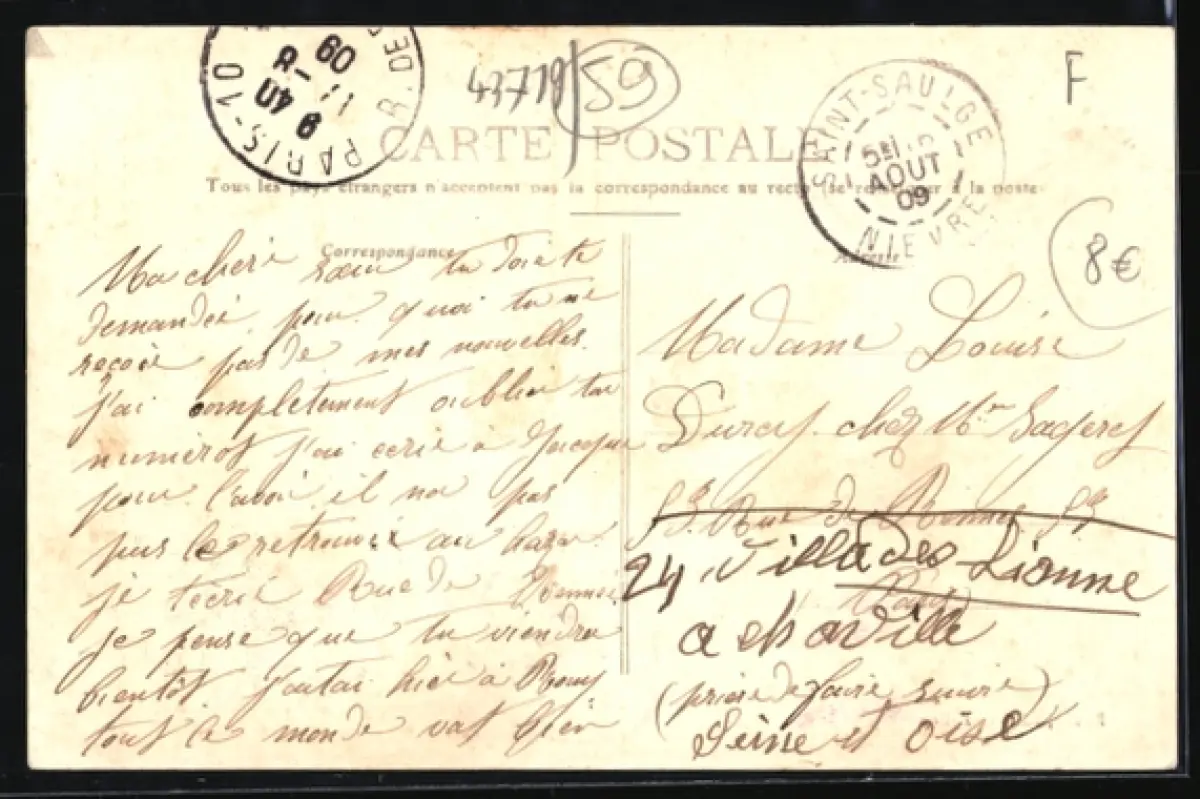 PARIS-10 R. DES
8 40
11-8
09
43719
59
F
SAINT-SAULGE
5E
AOUT
09
NIEVRE
CARTE POSTALE
Tous les pays étrangers n'acceptent pas la correspondance au recto (se renseigner à la poste
Correspondance
Adresse
8€
Ma cheri sœur tu doit te
demandée pour quoi tu ne
reçoie pas de mes nouvelles.
j'ai completement oublier ton
numerot j'ai ecrie à Jacque
pour l'avoir il na pas
pus le retrouvé au hazar
je t'écrie Rue de Rennes
je pense que tu viendra
bientôt j'autai hier à Rouy
tout le monde vat bien
Madame Louise
chez Mr
53 Rue de Rennes 53
Paris
24 villa des Lionne
a chaville
(prière de faire suivre)
Seine et oise